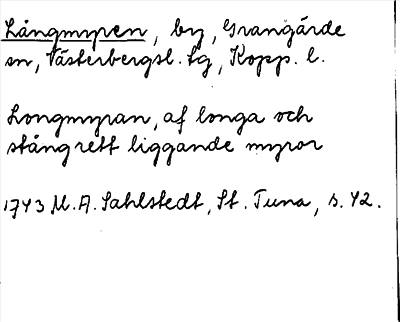 Långmyren, by, Grangärde
sn, Västerbergsl. fg, Kopp. l.
Longmyran, af longa och
stång rett liggande myror
1743 M. A. Sahlstedt, St. Tuna, s. 42.